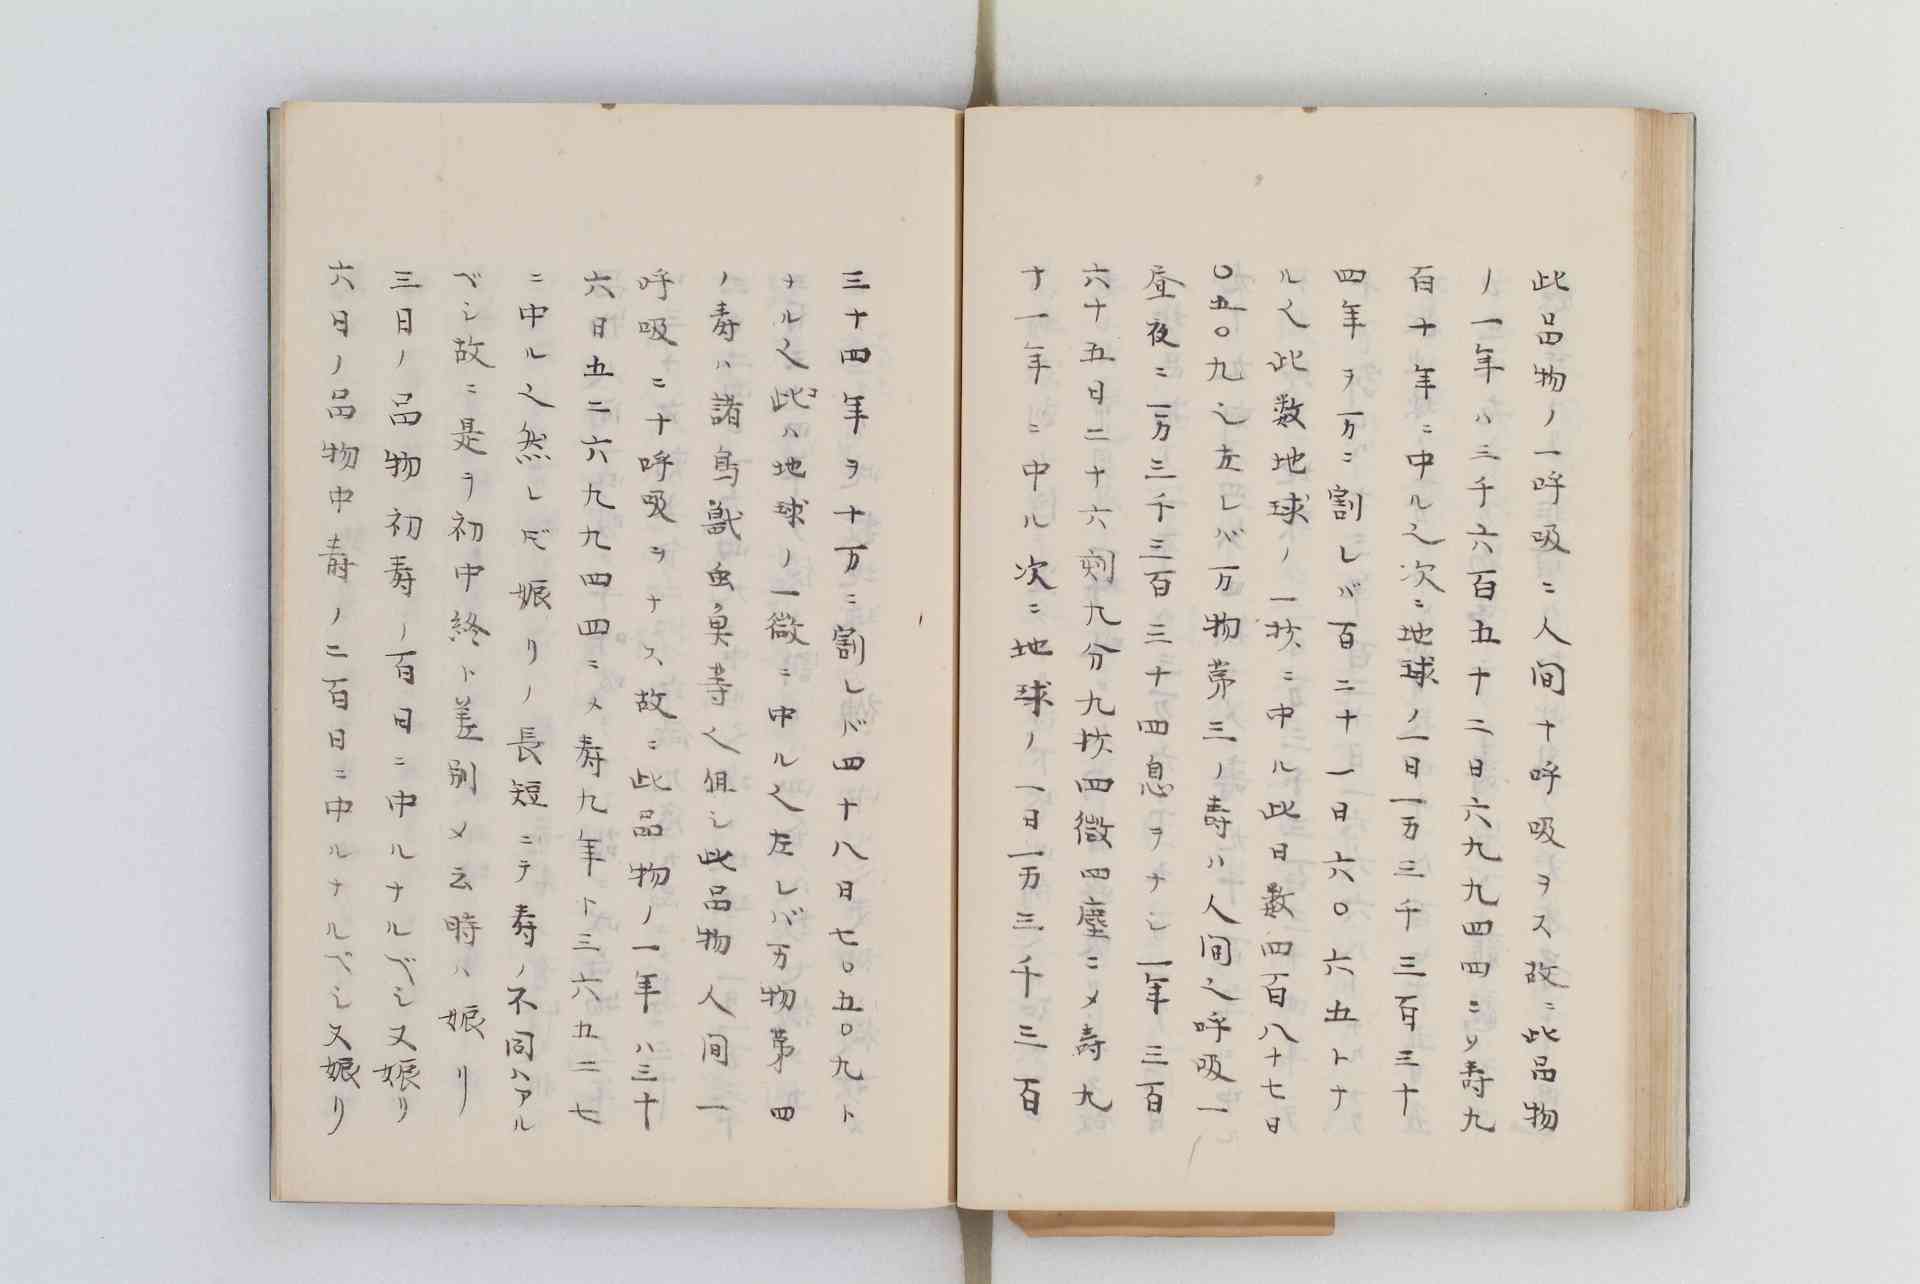 此品物ノ一呼吸ニ人間十呼吸ヲス故ニ此品物
ノ一年ハ三千六百五十二日六九九四四ニ乄寿九
百十年ニ中ル也次ニ地球ノ一日一万三千三百三十
四年ヲ一万ニ割レバ百二十一日六〇六五トナ
ル也此数地球ノ一㧡ニ中ル此日数四百八十七日
〇五〇九也左レバ万物第三ノ寿ハ人間之呼吸一
昼夜ニ一万三千三百三十四息ヲナシ一年三百
六十五日二十六刻九分九㧡四微四塵ニ乄寿九
十一年ニ中ル次ニ地球ノ一日一万三千三百
三十四年ヲ十万ニ割レバ四十八日七〇五〇九ト
ナル也此ハ地球ノ一微ニ中ル也左レバ万物第四
ノ寿ハ諸鳥獣虫魚等也但シ此品物人間一
呼吸ニ十呼吸ヲナス故ニ此品物ノ一年ハ三十
六日五二六九九四四ニ乄寿九年ト三六五二七
ニ中ル也然レ𪜈娠リノ長短ニテ寿ノ不同ハアル
ベシ故ニ是ヲ初中終ト差別乄云時ハ娠リ
三日ノ品物初寿ノ百日ニ中ルナルベシ又娠リ
六日ノ品物中寿ノ二百日ニ中ルナルベシ又娠リ